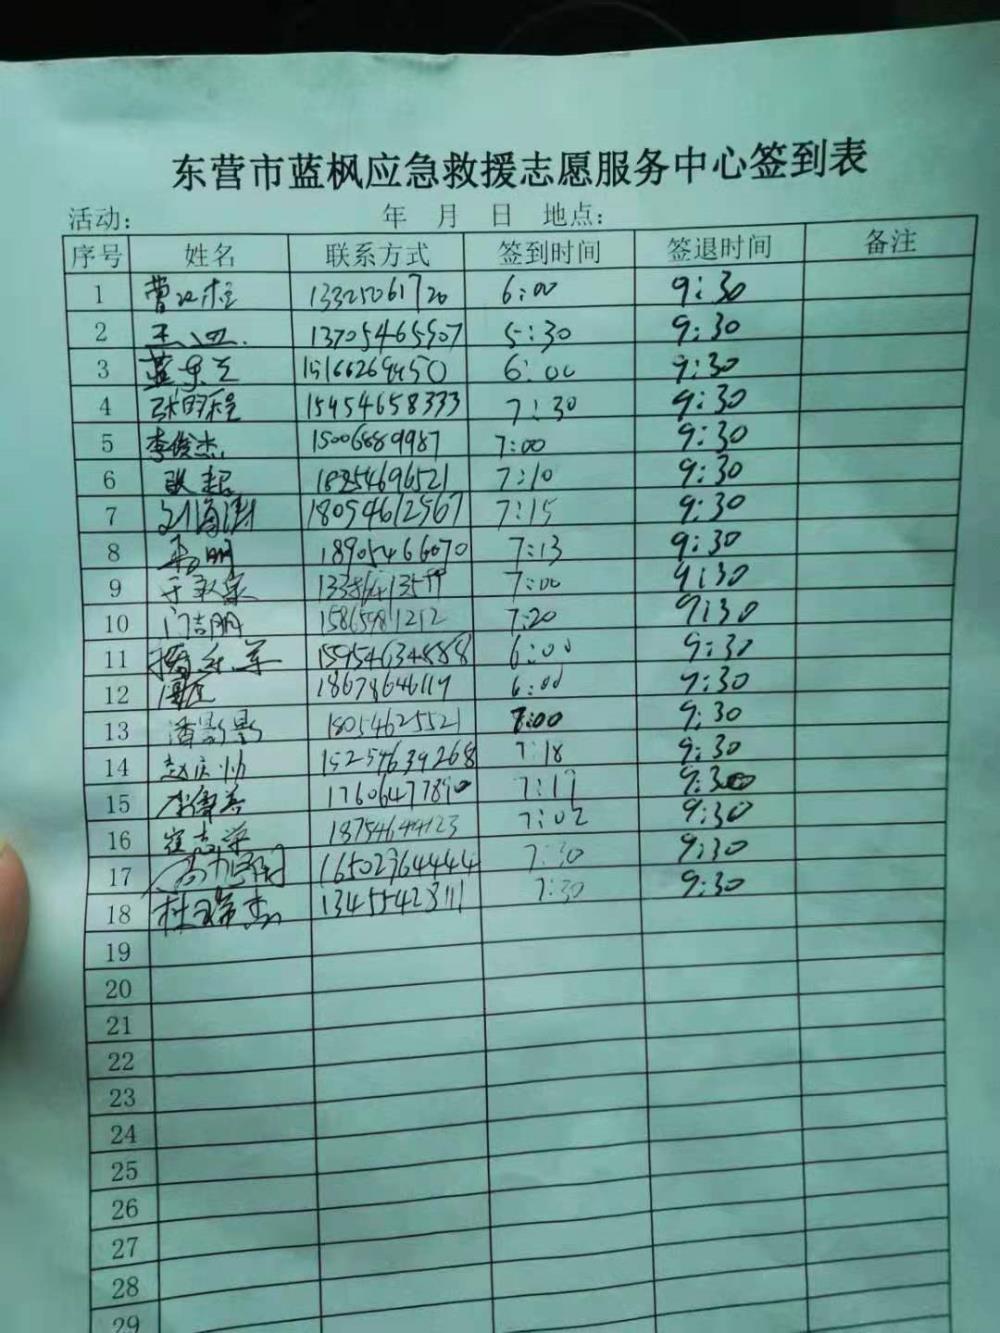 东营市蓝枫应急救援志愿服务中心签到表
活动： 年 月 日 地点：
序号 姓名 联系方式 签到时间 签退时间 备注
1 13325061720 6:00 9:30
2 13705465507 5:30 9:30
3 蓝东 6:00 9:30
4 张明程 15454658333 7:30 9:30
5 李俊杰 15006889987 7:00 9:30
6 18254696521 7:10 9:30
7 刘海澍 18054612567 7:15 9:30
8 明 18905466070 7:13 9:30
9 于 7:00 9:30
10 门吉朋 15865981212 7:20 9:30
11 15954634888 6:00 9:30
12 18678646119 6:00 9:30
13 潘影影 18054625521 7:00 9:30
14 赵庆帅 15254639268 7:18 9:30
15 李 17606477890 7:19 9:30
16 崔志 18754644123 7:02 9:30
17 16502964444 7:30 9:30
18 杜 13455423111 7:30 9:30
19
20
21
22
23
24
25
26
27
28
29